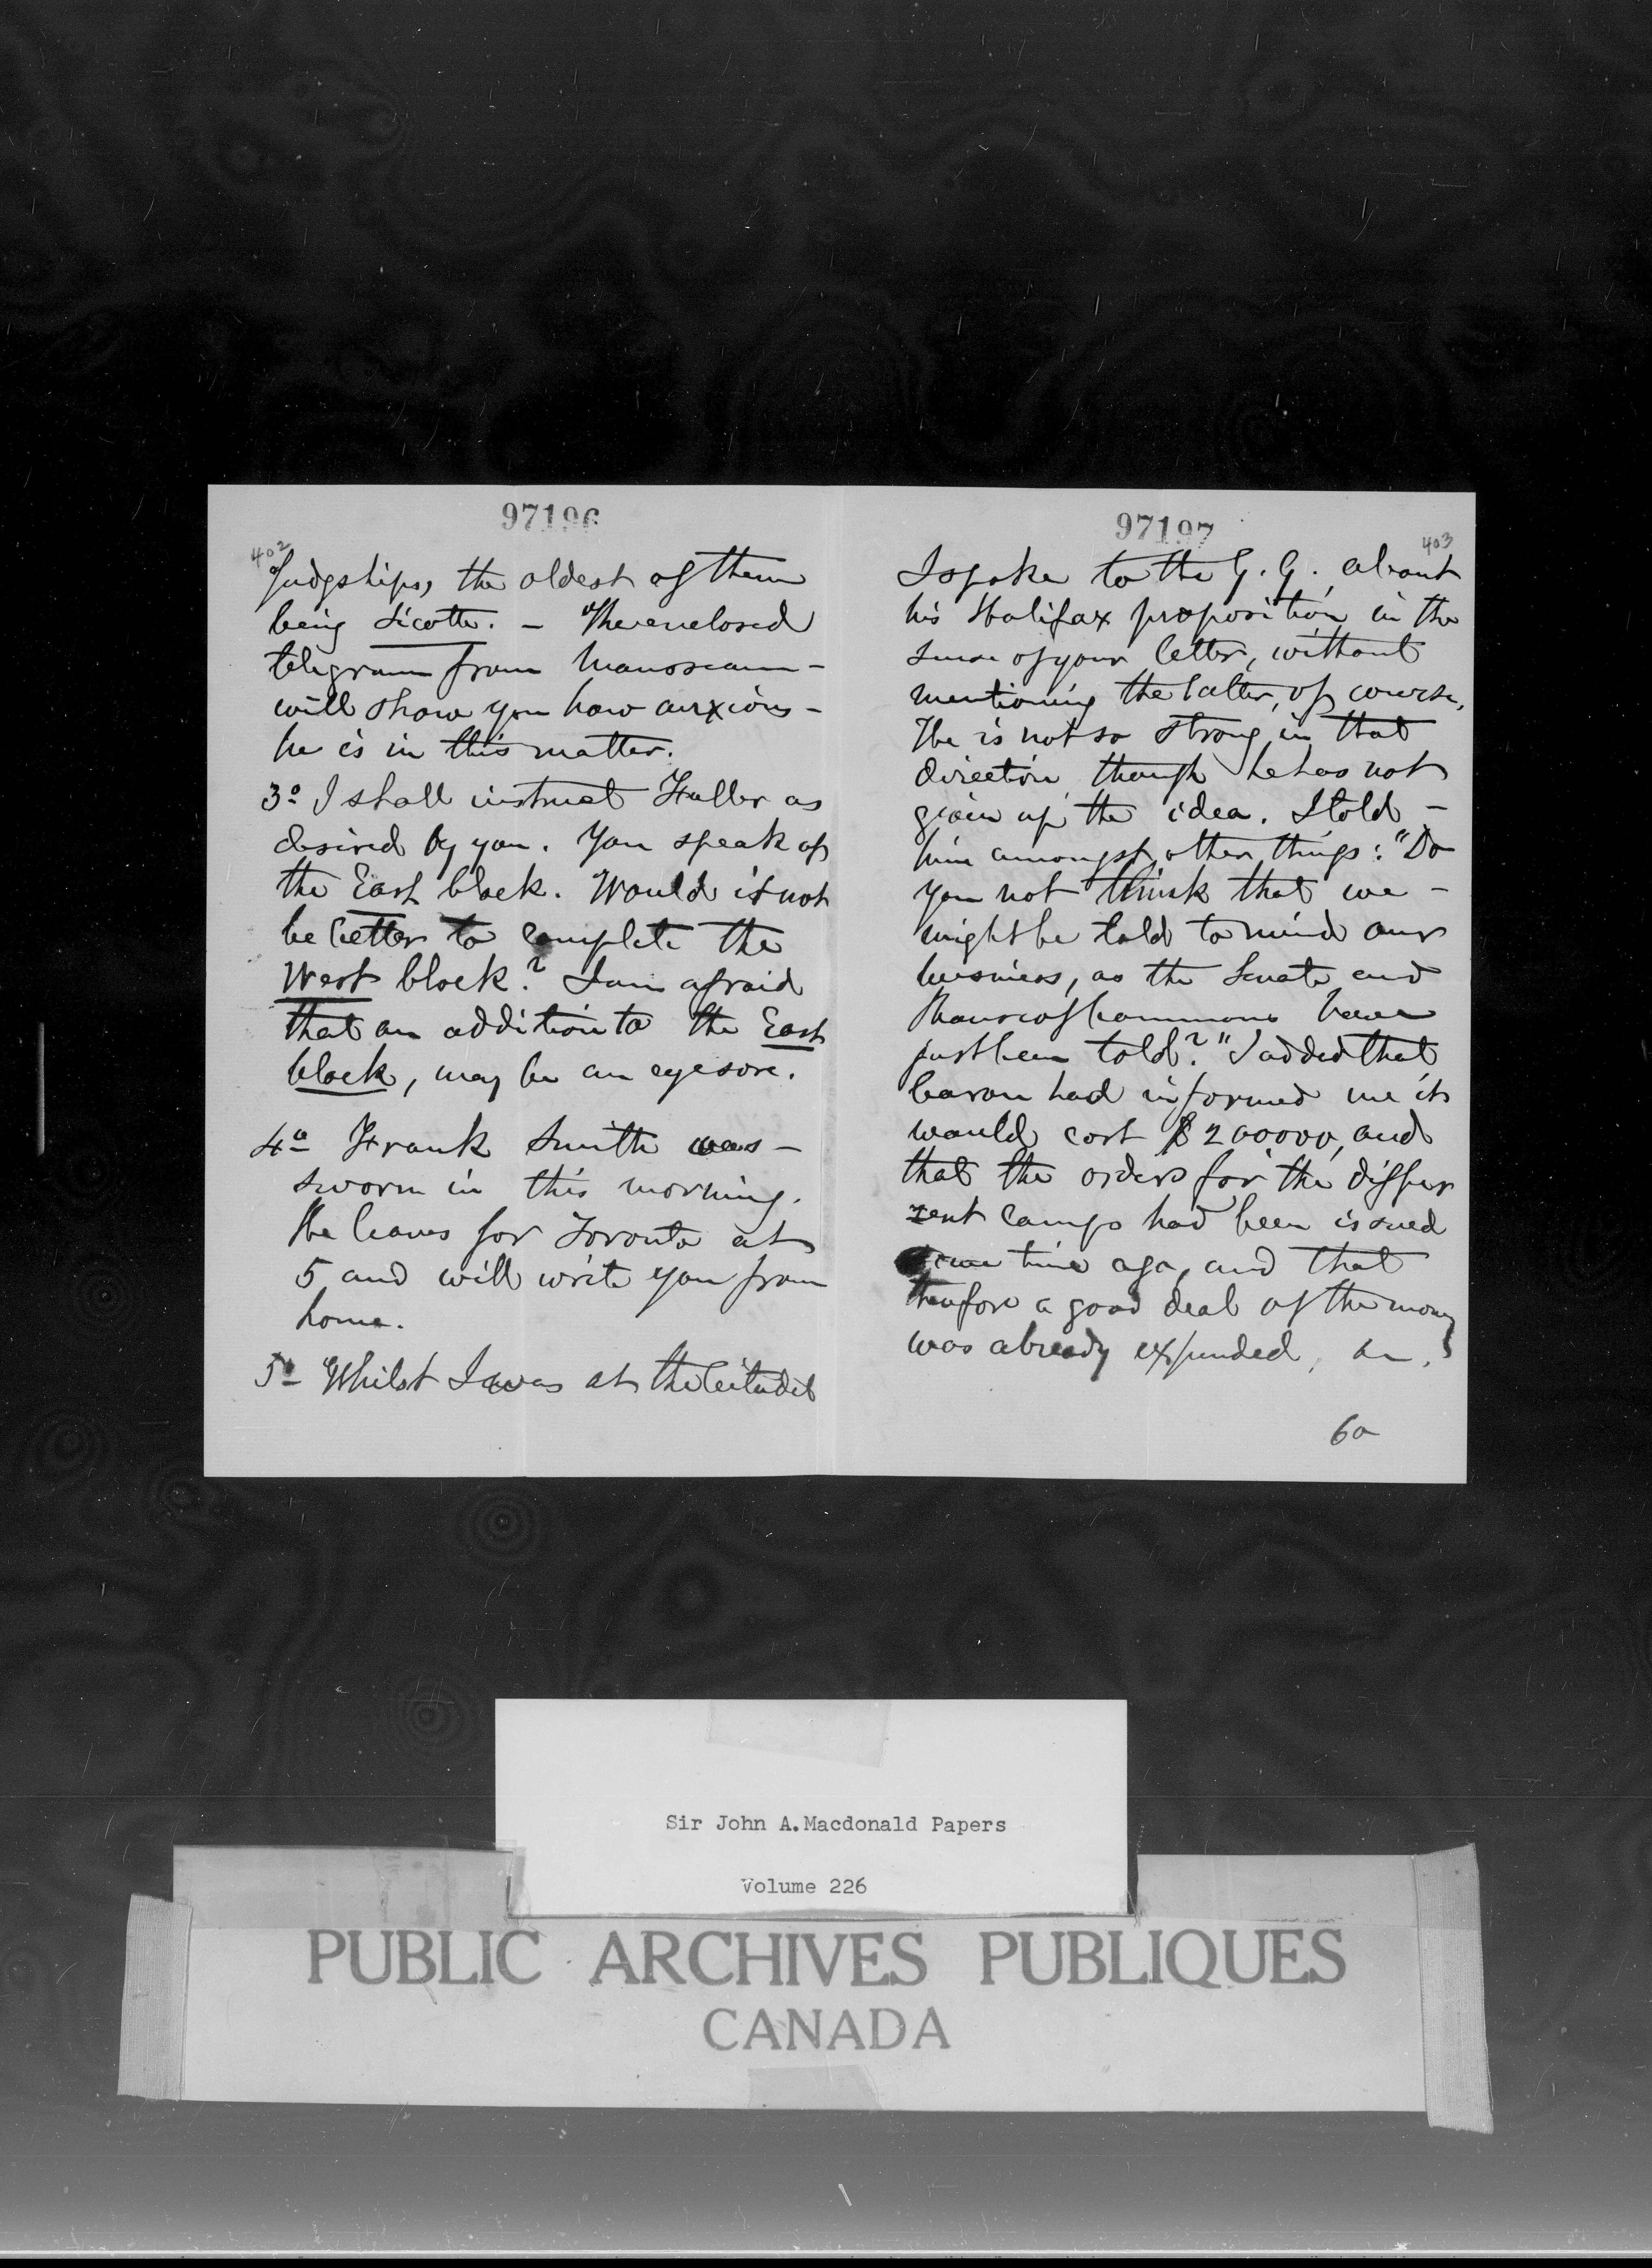 97196
402
Judgships, the oldest of them
being Sicotte. – The enclosed
telegram from Mousseau –
will show you how anxious –
he is in this matter.
3º I shall instruct Fuller as
desired by you. You speak of
the East block. Would it not
be better to complete the
West block? I am afraid
that an addition to the East
block, may be an eyesore.
4º Frank Smith was –
sworn in this morning.
He leaves for Toronto at
5 and will write you from
home.
5º Whilst I was at the Citadel
97197
403
I spoke to the G. G. about
his Halifax proposition in the
sense of your letter, without
mentioning the latter, of course.
He is not so strong in that
direction though he has not
given up the idea. I told –
him amongst other things: "Do
you not think that we –
might be told to mind our
business, as the Senate and
House of Commons have
just been told?" I added that
Caron had informed me it
would cost $200000, and
that the orders for the differ
rent camps had been issued
some time ago, and that
therefore a good deal of the money
was already expended, &c.
6º
Sir John A. Macdonald Papers
Volume 226
PUBLIC ARCHIVES PUBLIQUES
CANADA